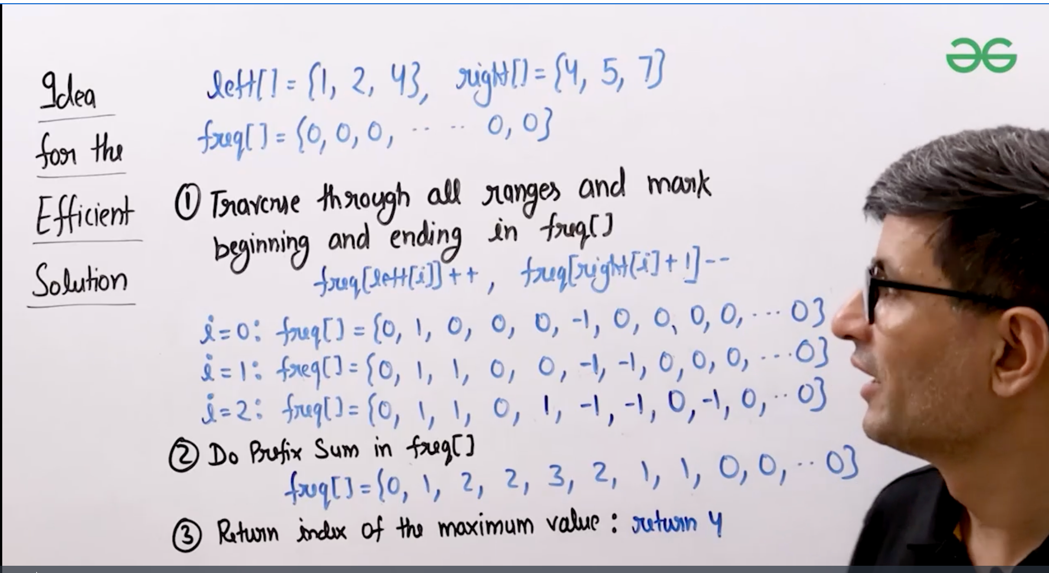 Idea
for the
Efficient
Solution
left[] = {1, 2, 4}, right[] = {4, 5, 7}
freq[] = {0, 0, 0, ‥ ‥ 0, 0}
① Traverse through all ranges and mark
beginning and ending in freq[]
freq[left[i]]++, freq[right[i]+1]--
i=0: freq[] = {0, 1, 0, 0, 0, -1, 0, 0, 0, 0, ... 0}
i=1: freq[] = {0, 1, 1, 0, 0, -1, -1, 0, 0, 0, ... 0}
i=2: freq[] = {0, 1, 1, 0, 1, -1, -1, 0, -1, 0, .. 0}
② Do Prefix Sum in freq[]
freq[] = {0, 1, 2, 2, 3, 2, 1, 1, 0, 0, .. 0}
③ Return index of the maximum value : return 4